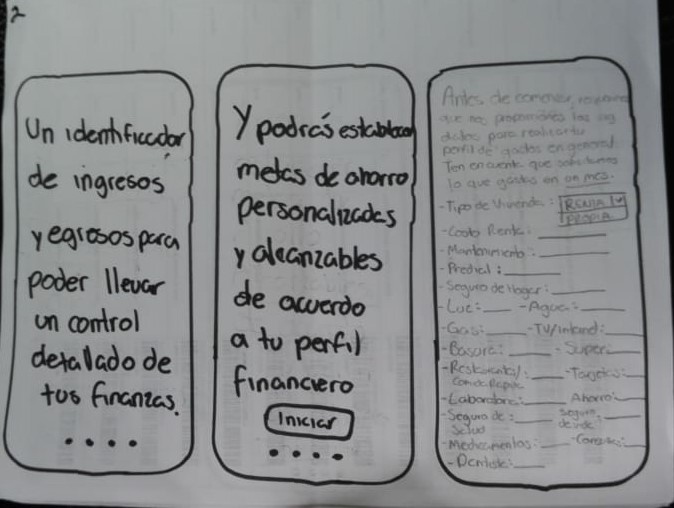 2
Un identificador
de ingresos
y egresos para
poder llevar
un control
detallado de
tus finanzas.
Y podrás establecer
metas de ahorro
personalizadas
y alcanzables
de acuerdo
a tu perfil
financiero
Iniciar
Antes de comenzar,
que nos proporciones los
datos para realizar tu
perfil de gastos en general
Ten en cuenta que solicitamos
lo que gastas en un mes.
- Tipo de Vivienda: RENTA
PROPIA
- Costo Renta:
- Mantenimiento:
- Predial:
- Seguro de Hogar:
- Luz: - Agua:
- Gas: - TV/Internet:
- Basura: - Super:
- Restaurantes/ - Tarjetas:
Comida Rapida
- Laboratorio: Ahorro:
- Seguro de: Seguro
Salud de vida:
- Medicamentos: - Consultas:
- Dentista: